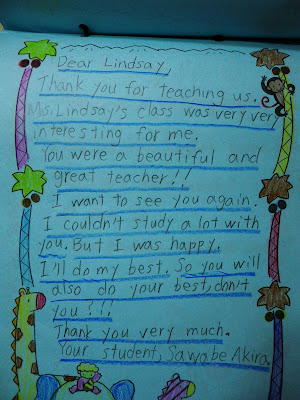 Dear Lindsay,
Thank you for teaching us.
Ms. Lindsay's class was very very
interesting for me.
You were a beautiful and
great teacher!!
I want to see you again.
I couldn't study a lot with
you. But I was happy.
I'll do my best. So you will
also do your best, don't
you?!!
Thank you very much.
Your student, Sawabe Akira.